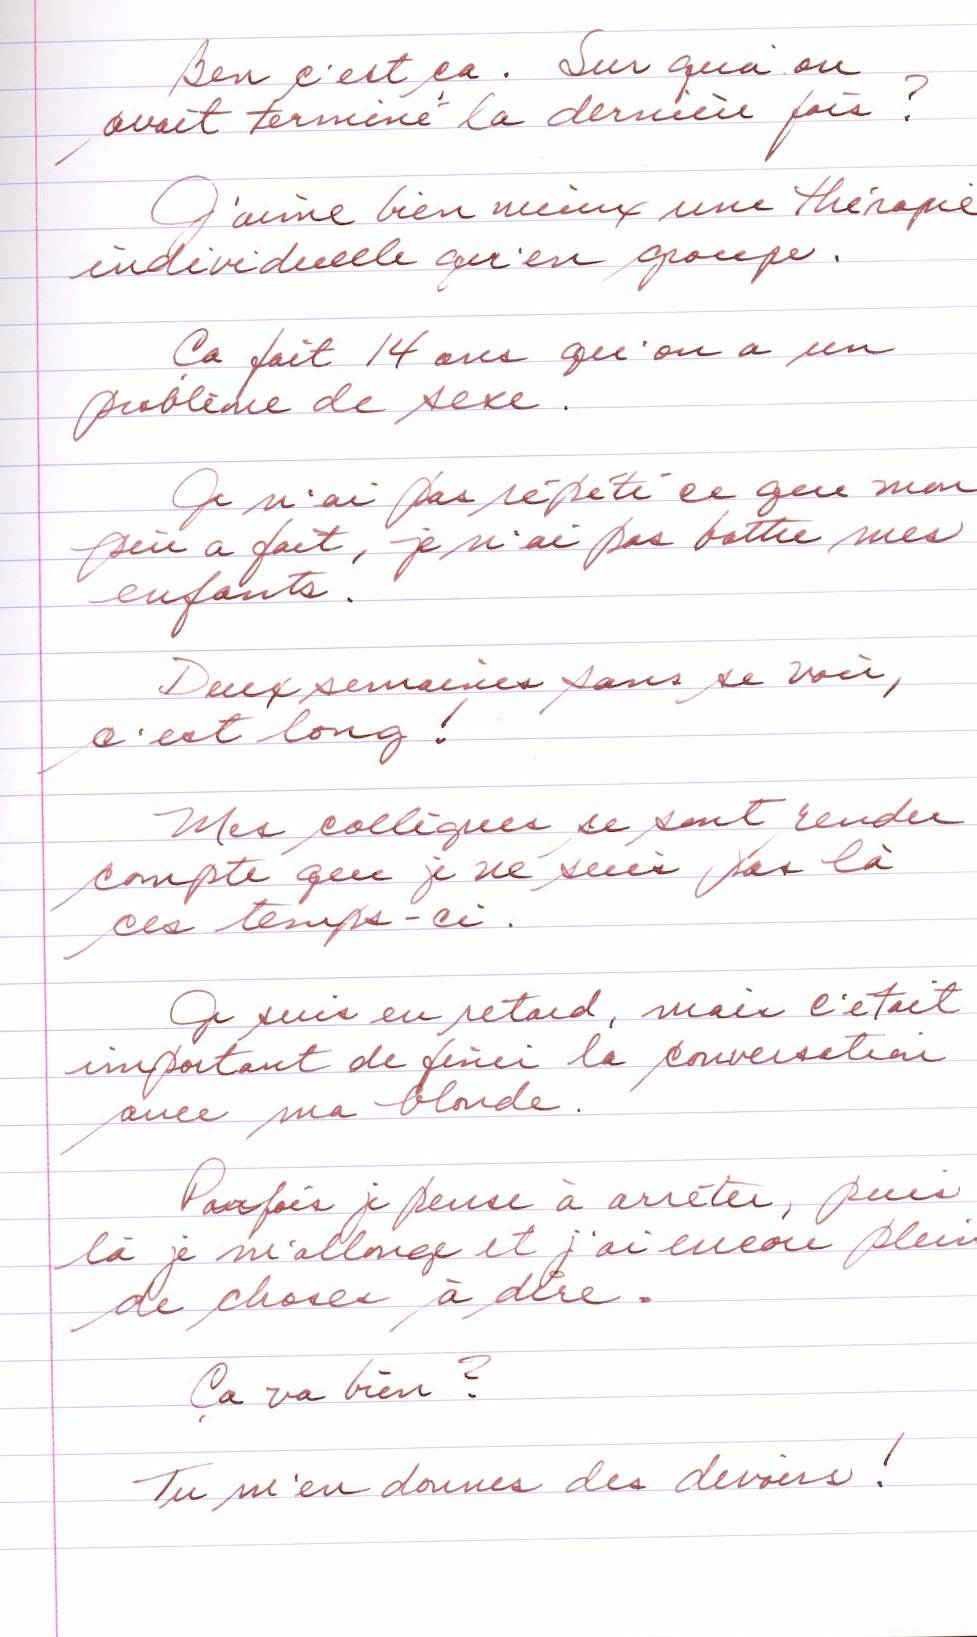 Ben c'est ça. Sur quoi on
avait terminé la dernière fois ?
J'aime bien mieux une thérapie
individuelle qu'en groupe.
Ça fait 14 ans qu'on a un
problème de sexe.
Je n'ai pas répété ce que mon
père a fait, je n'ai pas battu mes
enfants.
Deux semaines sans se voir,
c'est long !
Mes collègues se sont rendu
compte que je ne suis pas là
ces temps-ci.
Je suis en retard, mais c'était
important de finir la conversation
avec ma blonde.
Parfois je pense à arrêter, puis
là je m'allonge et j'ai encore plein
de choses à dire.
Ça va bien ?
Tu m'en donnes des devoirs !